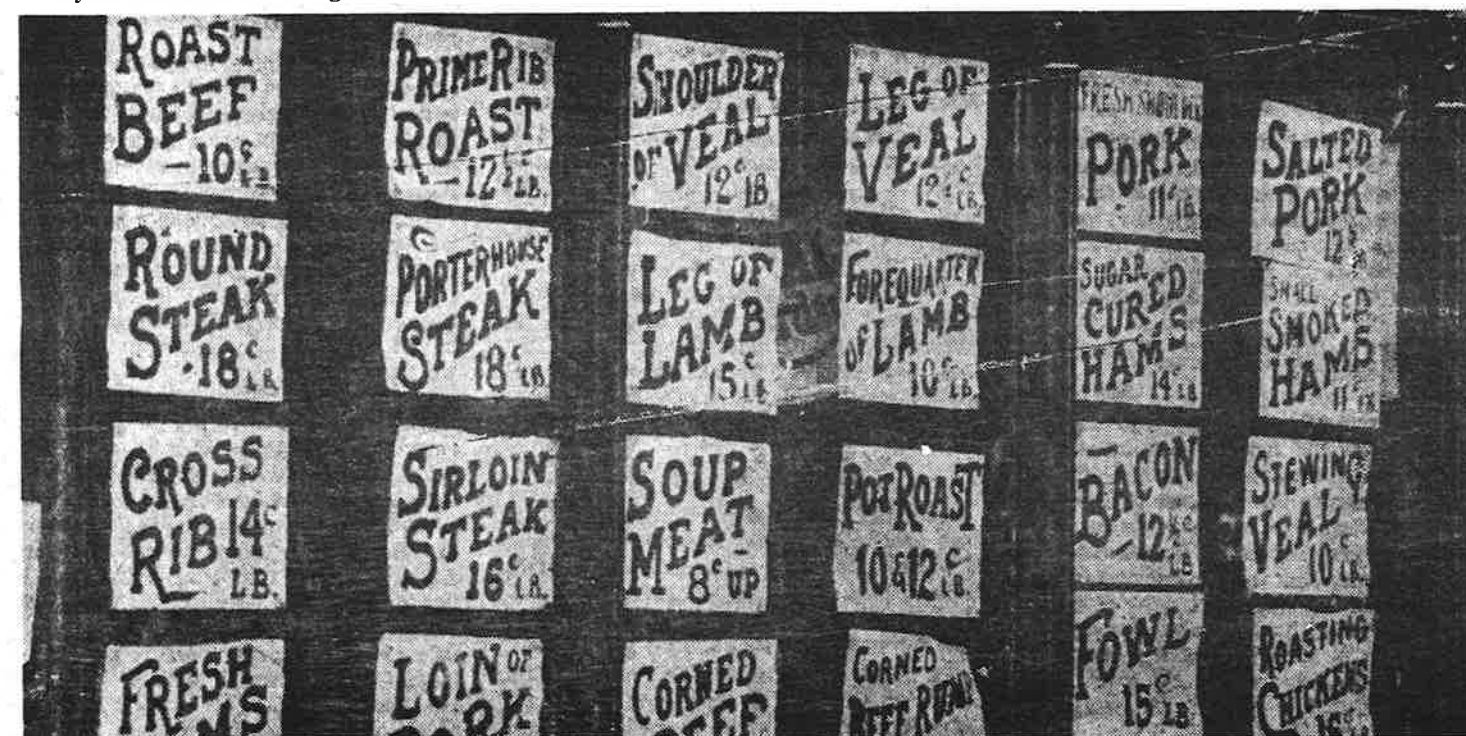 ROAST
BEEF
—10¢
LB
PRIME RIB
ROAST
—12½¢ LB.
SHOULDER
OF VEAL
12¢ LB
LEG OF
VEAL
12½¢ LB.
PORK
11¢ LB
SALTED
PORK
12
ROUND
STEAK
18¢ LB.
PORTERHOUSE
STEAK
18¢ LB.
LEG OF
LAMB
15¢ LB
FOREQUARTER
OF LAMB
10¢ LB.
SUGAR
CURED
HAMS
14¢ LB
SMALL
SMOKED
HAMS
11¢ LB
CROSS
RIB 14¢
LB.
SIRLOIN
STEAK
16¢ LB.
SOUP
MEAT
8¢ UP
POT ROAST
10 & 12¢ LB.
BACON
—12½¢
LB
STEWING
VEAL
10¢ LB.
FRESH
LOIN OF
PORK
CORNED
BEEF
CORNED
BEEF RUMP
FOWL
15¢ LB
ROASTING
CHICKENS